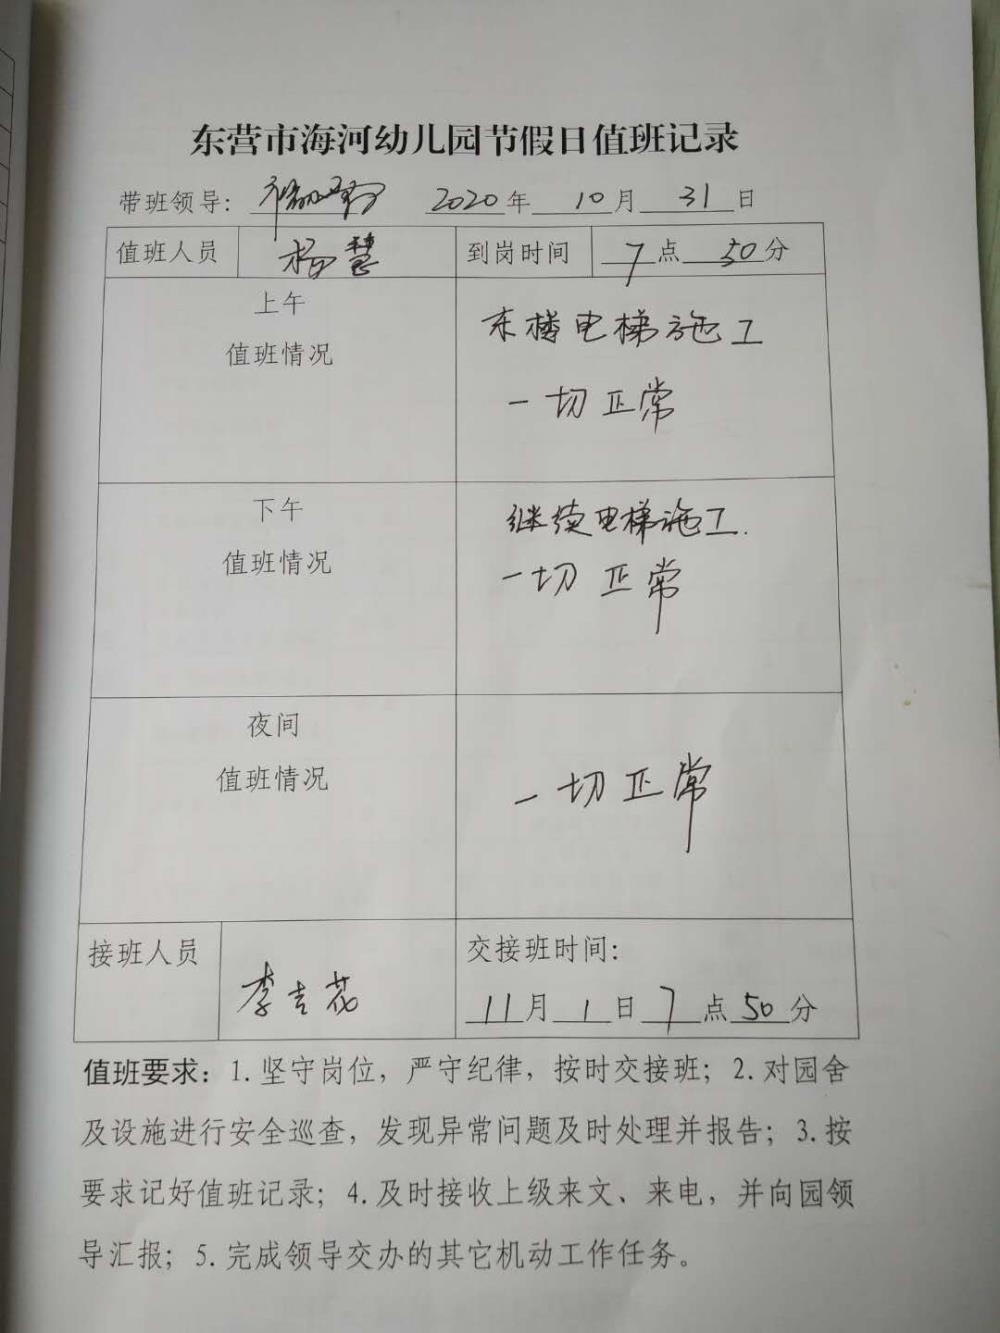 东营市海河幼儿园节假日值班记录
带班领导: 2020年 10月 31日
值班人员 杨慧 到岗时间 7点 50分
上午
值班情况
东楼电梯施工
一切正常
下午
值班情况
继续电梯施工.
一切正常
夜间
值班情况
一切正常
接班人员 李吉花
交接班时间:
11月 1日 7点 50分
值班要求: 1.坚守岗位，严守纪律，按时交接班；2.对园舍
及设施进行安全巡查，发现异常问题及时处理并报告；3.按
要求记好值班记录；4.及时接收上级来文、来电，并向园领
导汇报；5.完成领导交办的其它机动工作任务。